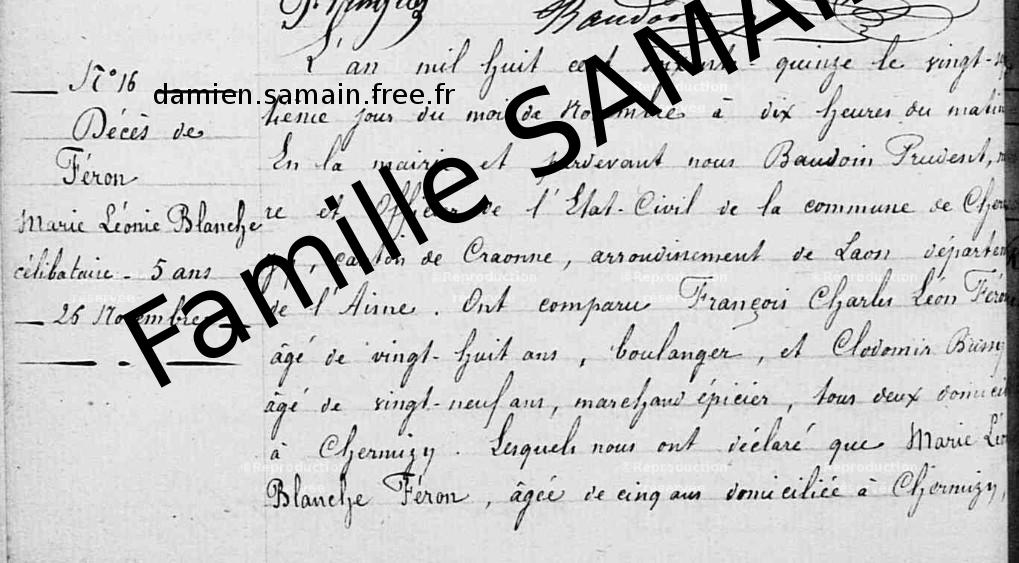 Baudoin
L'an mil huit cent soixante-quinze le vingt-sep
tième jour du mois de Novembre à dix heures du matin
En la mairie et pardevant nous Baudoin Prudent,
re et Officier de l'Etat-Civil de la commune de Cher
, canton de Craonne, arrondissement de Laon départem
de l'Aisne. Ont comparu François Charles Léon Féron
âgé de vingt-huit ans, boulanger, et Clodomir
âgé de vingt-neuf ans, marchand épicier, tous deux domicil
à Chermizy. Lesquels nous ont déclaré que Marie Léo
Blanche Féron, âgée de cinq ans domiciliée à Chermizy,
N° 16
Décès de
Féron
Marie Léonie Blanche
célibataire - 5 ans
26 Novembre
damien.samain.free.fr
Famille SAMAIN
©Reproduction